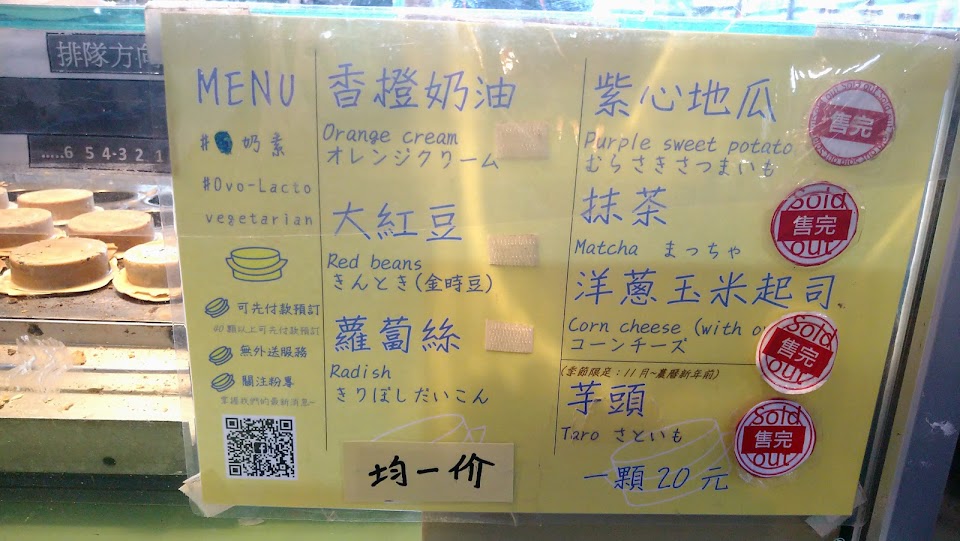 排隊方向
.....6 5 4-3 2 1
MENU
# 奶素
#Ovo-Lacto
vegetarian
可先付款預訂
40顆以上可先付款預訂
無外送服務
關注粉專
掌握我們的最新消息~
香橙奶油
Orange cream
オレンジクリーム
大紅豆
Red beans
きんとき(金時豆)
蘿蔔絲
Radish
きりぼしだいこん
均一价
紫心地瓜
Purple sweet potato
むらさきさつまいも
售完
抹茶
Matcha まっちゃ
Sold
售完
out
洋蔥玉米起司
Corn cheese (with
コーンチーズ
Sold
售完
out
(季節限定：11月~農曆新年前)
芋頭
Taro さといも
Sold
售完
out
一顆20元